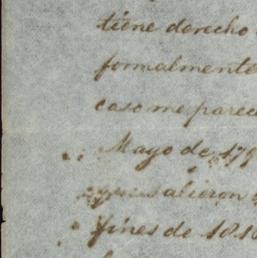 tiene derecho
formalmente
caso me parec
Mayo de 179
salieron
fines de 1810